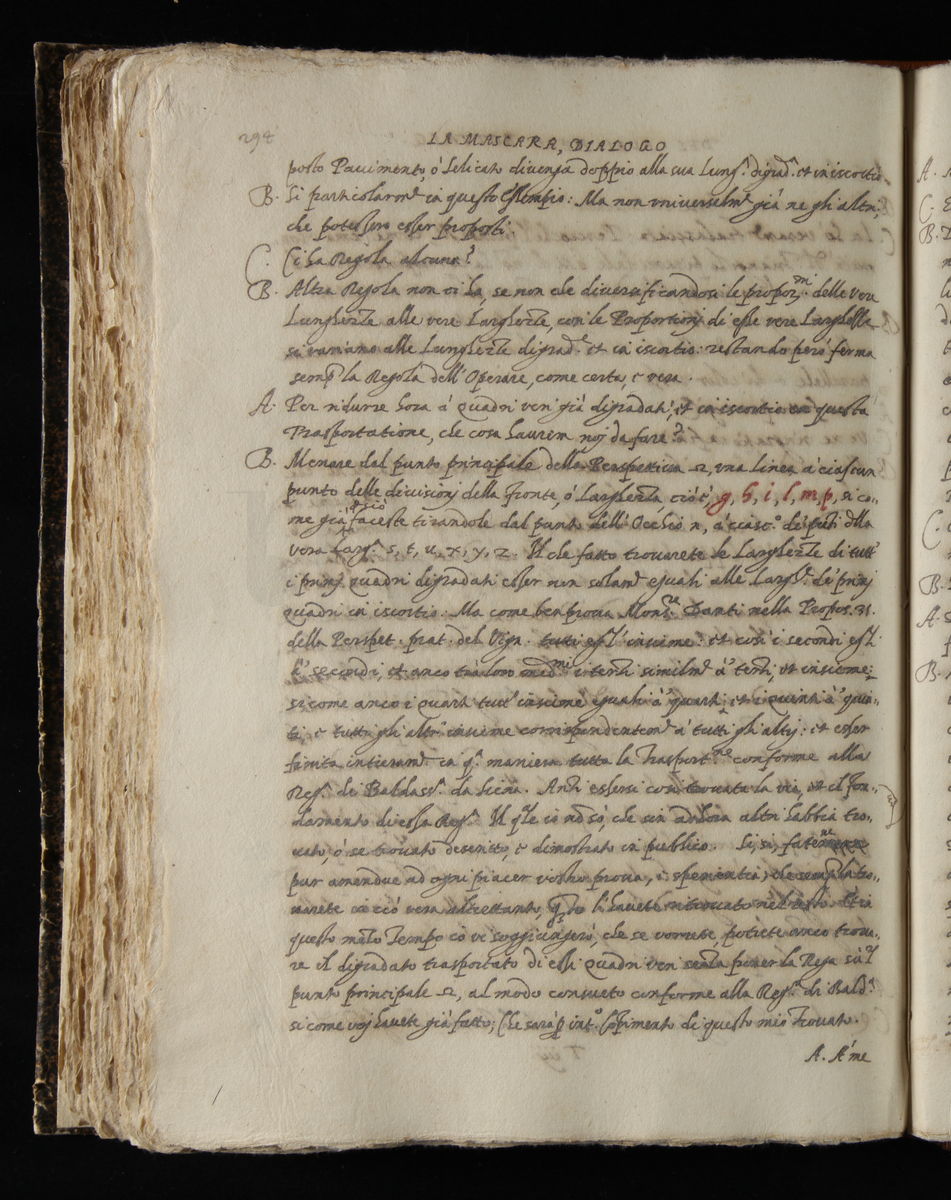 298
LA MASCARA, DIALOGO
posto Pavimento, ò Selicato divenga doppio alla sua Lungh.ª digrad.ª et in iscortio.
B. Si particolarm.e in questo essempio: Ma non universalm.e già ne gli altri,
che potessero esser proposti.
C. Ci ha Regola alcuna?
B. Altra Regola non ci ha, se non che diversificandosi le propor.ni delle vere
Lunghezze alle vere Larghezze, con le Proportionj di esse vere Larghezze
si variano alle Lunghezze digrad.e et in iscortio: restando però ferma
semp.e la Regola dell' Operare, come certa, e vera.
A. Per ridurre hora à quadri veri già digradati, et in iscortio in questa
Trasportatione, che cosa haurem noj da fare?
B. Menare dal punto principale della Perspettiva Ω, una linea à ciascun
punto delle divisionj della fronte, ò Larghezza cioè, g, h, i, l, m, p, si co-
me già faceste tirandole dal punto dell' Occhio n, à ciasc.º de' piedi dlla
vera Largh.ª s, t, u, x, y, z. Il che fatto trovarete le Larghezze di tutt'
i primj quadri digradati esser non solam.e eguali alle Largh.e de' primj
quadri in iscortio: Ma come ben prova Mons.re Danti nella Propos. 31.
della Perspet. prat. del Vign. tutti essi insieme: et così i secondi
secondi, et anco tra loro med.mi i terzi similm.e à' terzi, et insieme;
si come anco i quarti tutt' insieme eguali à' quarti; et i quinti à' quin-
ti, e tutti gli altri insieme corrispondentem.e à tutti gli altrj: et esser
finita intieram.e in q.ª maniera tutta la Trasport.ne conforme alla
Reg.ª di Baldass.e da Siena. Anzi essersi così trovata la via, et il fon-
damento di essa Reg.ª Il q.le io nõ sò, che sin ad hora altri habbia tro-
vato, ò se trovato descritto, e dimostrato in publico. Si, si, fatene
pur amendue ad ogni piacer vostro prova, e sperientia; che
varete in ciò vero
questo m.lo Tempo io vi soggiungerò, che se vorrete, potrete anco trova-
re il digradato trasportato di essi quadri veri senza poner la Riga sù 'l
punto principale Ω, al modo consueto conforme alla Reg.ª di Bald.e
si come voj havete già fatto; Che sarà p int.º Cõpimento di questo mio Trovato.
A. A' me